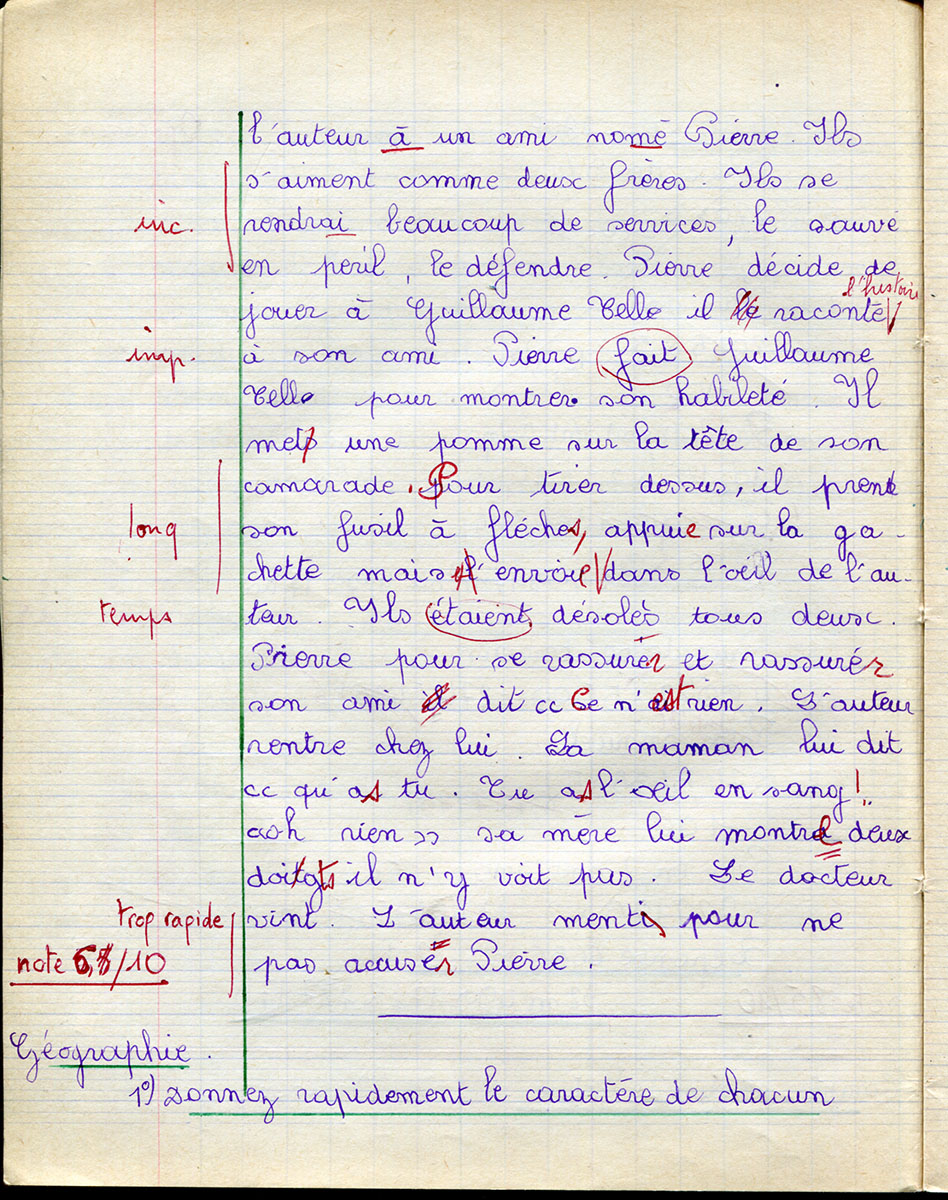 l'auteur à un ami nomé Pierre. Ils
s'aiment comme deux frères. Ils se
inc. rendrai beaucoup de services, le sauvé
en peril, le défendre. Pierre décide de
l'histoire
jouer à Guillaume Telle il le raconté
imp. à son ami. Pierre fait Guillaume
Telle pour montrer son habileté. Il
mets une pomme sur la tête de son
camarade. Pour tirer dessus, il prent
long son fusil à flèches, appuie sur la ga-
chette mais l'envoie dans l'oeil de l'au-
temps teur. Ils étaient désolés tous deux.
Pierre pour se rassurer et rassurér
son ami il dit cc Ce n'est rien. L'auteur
rentre chez lui. Sa maman lui dit
cc qu'as tu. Tu as l'oeil en sang!
aoh rien >> sa mère lui montre deux
doitgts il n'y voit pus. Le docteur
trop rapide vint. L'auteur mentis pour ne
note /10 pas accusér Pierre.
Géographie.
1°) Donnez rapidement le caractére de chacun